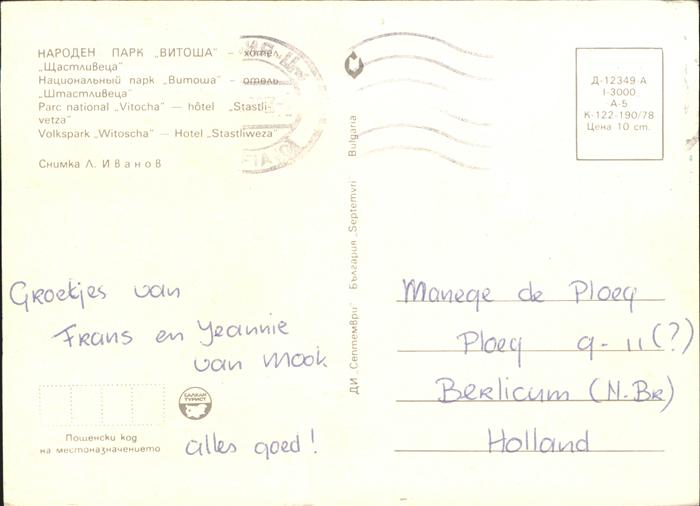 НАРОДЕН ПАРК „ВИТОША" – хотел
„Щастливеца"
Национальный парк „Витоша" – отель
„Штастливеца"
Parc national „Vitocha" — hôtel „Stastli-
vetza"
Volkspark „Witoscha" — Hotel „Stastliweza"
Снимка Л. Иванов
Д-12349-А
I-3000
А-5
К-122-190/78
Цена 10 ст.
ДИ „Септември" България „Septemvri" Bulgaria
Groetjes van
Frans en Jeannie
van Mook
alles goed!
БАЛКАН
ТУРИСТ
Пощенски код
на местоназначението
Manege de Ploeg
Ploeg 9-11 (?)
Berlicum (N.Br)
Holland